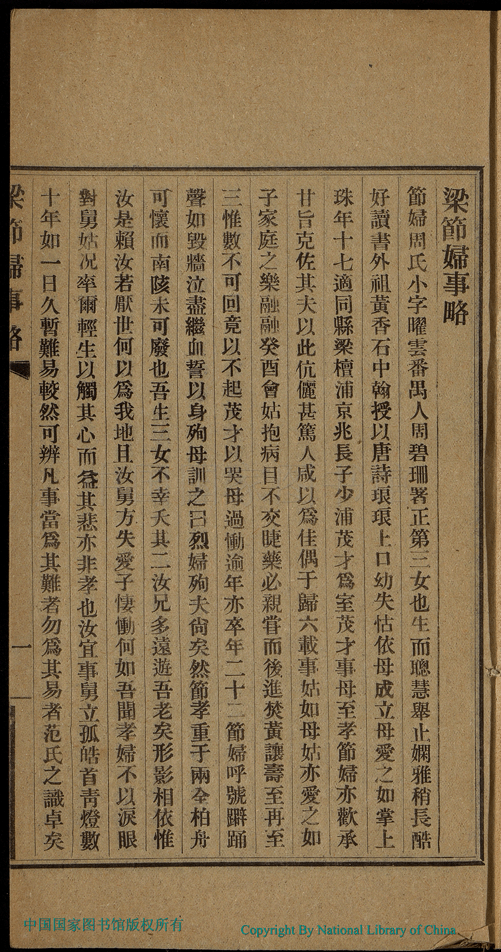 梁節婦事略
節婦周氏小字曜雲番禺人周碧珊署正第三女也生而聰慧舉止嫻雅稍長酷
好讀書外祖黃香石中翰授以唐詩琅琅上口幼失怙依母成立母愛之如掌上
珠年十七適同縣梁檀浦京兆長子少浦茂才為室茂才事母至孝節婦亦歡承
甘旨克佐其夫以此伉儷甚篤人咸以為佳偶于歸六載事姑如母姑亦愛之如
子家庭之樂融融癸酉會姑抱病目不交睫藥必親甞而後進焚黃讓壽至再至
三惟數不可回竟以不起茂才以哭母過慟逾年亦卒年二十二節婦呼號躃踊
聲如毀牆泣盡繼血誓以身殉母訓之曰烈婦殉夫尚矣然節孝重于兩全柏舟
可懷而南陔未可廢也吾生三女不幸夭其二汝兄多遠遊吾老矣形影相依惟
汝是賴汝若厭世何以爲我地且汝舅方失愛子悽慟何如吾聞孝婦不以淚眼
對舅姑况率爾輕生以觸其心而益其悲亦非孝也汝宜事舅立孤皓首靑燈數
十年如一日久暫難易較然可辨凡事當爲其難者勿爲其易者范氏之識卓矣
梁節婦事略
一
中国国家图书馆版权所有
Copyright By National Library of China